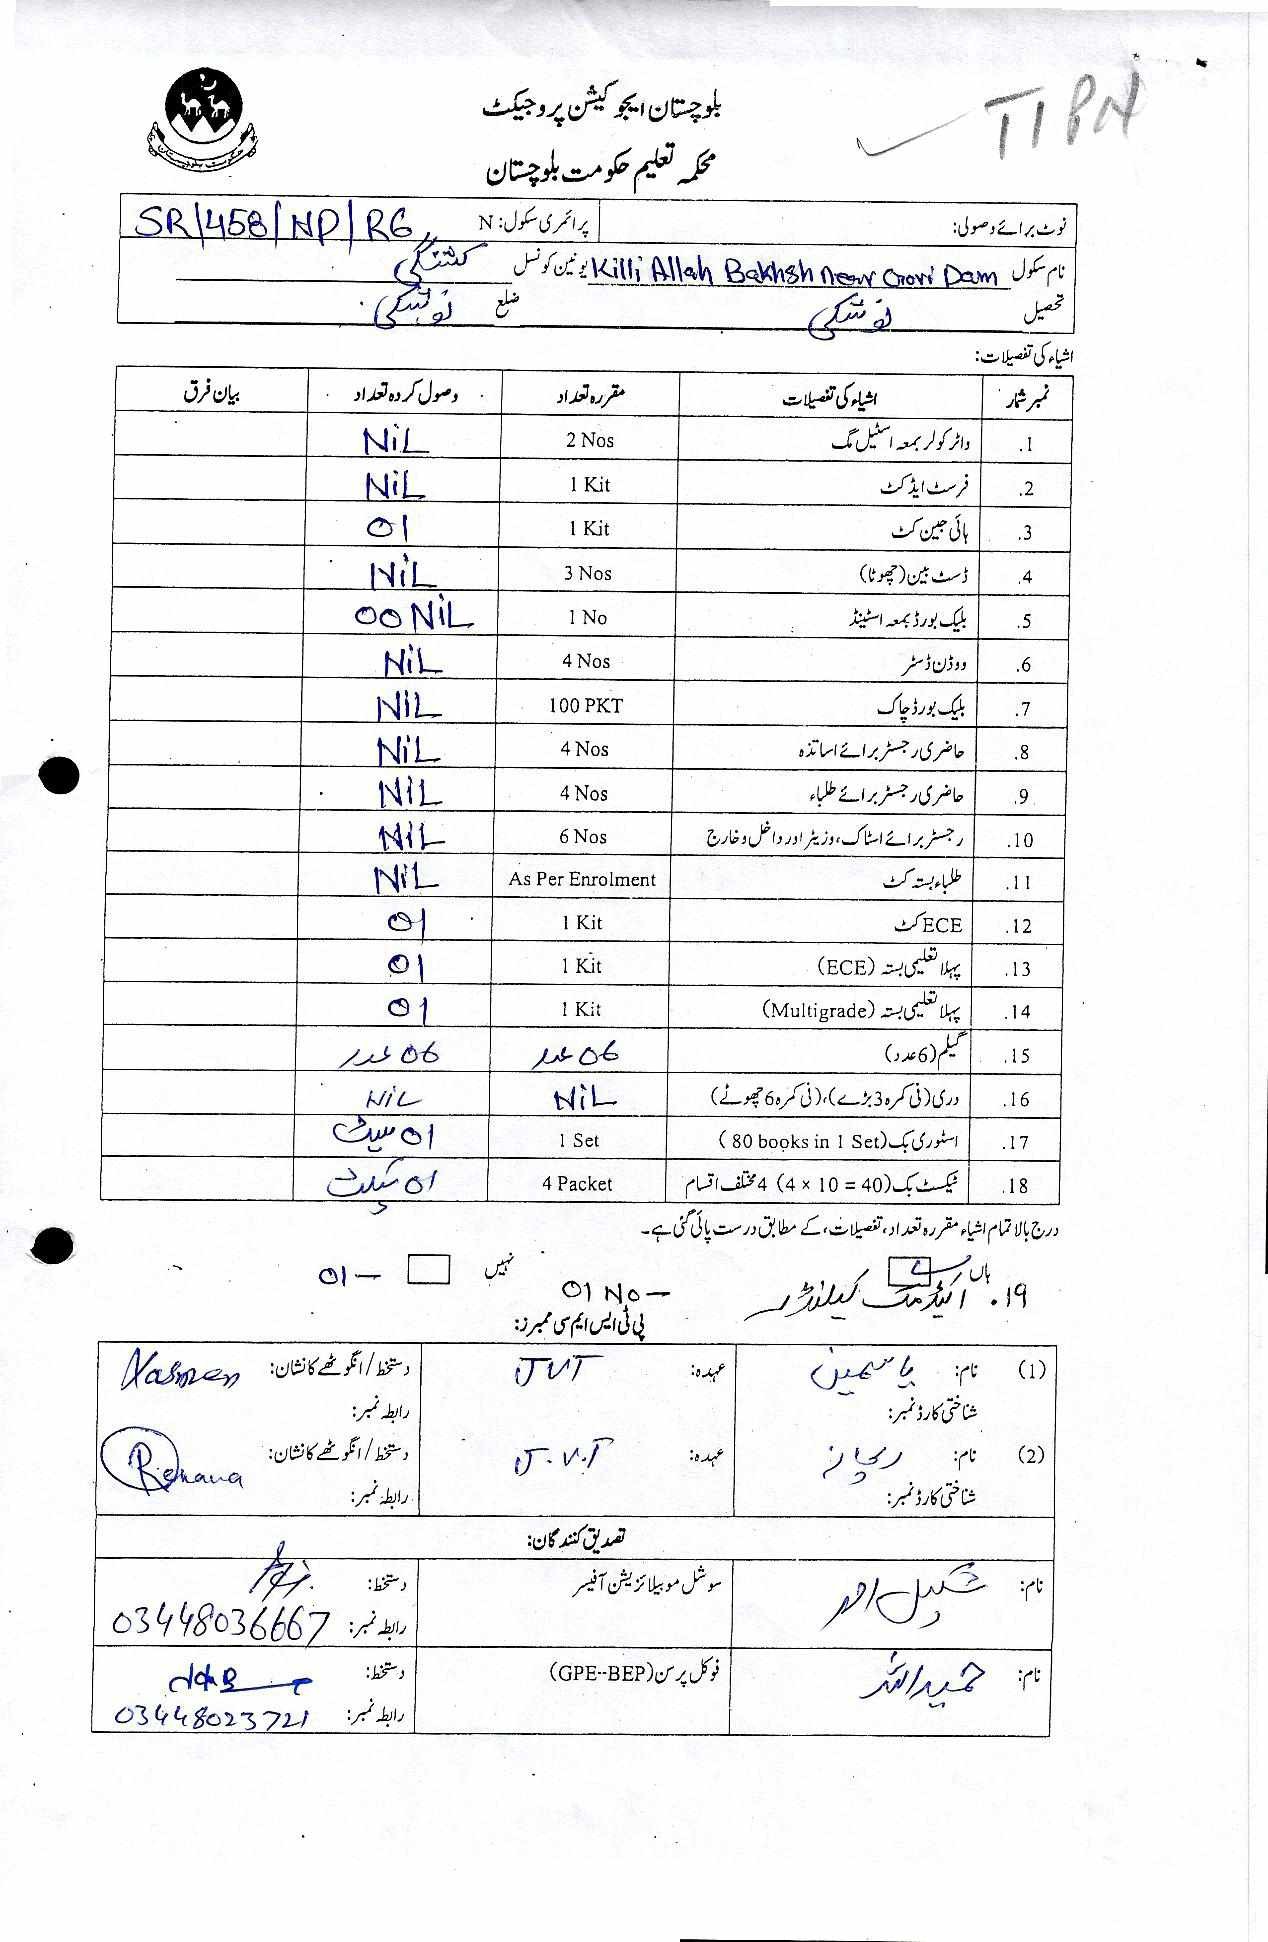 TIPN
بلوچستان ایجوکیشن پروجیکٹ
محکمہ تعلیم حکومت بلوچستان
نوٹ برائے وصولی: پرائمری سکول: N SR/458/NP/RG
نام سکول Killi Allah Bakhsh near Gori Dam یونین کونسل کشنگی
تحصیل نوشکی ضلع نوشکی
اشیاء کی تفصیلات:
نمبر شمار اشیاء کی تفصیلات مقررہ تعداد وصول کردہ تعداد بیان فرق
1. واٹر کولر بمعہ اسٹیل مگ 2 Nos NiL
2. فرسٹ ایڈ کٹ 1 Kit NiL
3. ہائی جین کٹ 1 Kit 01
4. ڈسٹ بین (چھوٹا) 3 Nos NiL
5. بلیک بورڈ بمعہ اسٹینڈ 1 No 00 NiL
6. ووڈن ڈسٹر 4 Nos NiL
7. بلیک بورڈ چاک 100 PKT NiL
8. حاضری رجسٹر برائے اساتذہ 4 Nos NiL
9. حاضری رجسٹر برائے طلباء 4 Nos NiL
10. رجسٹر برائے اسٹاک، وزیٹر اور داخل و خارج 6 Nos NiL
11. طلباء بستہ کٹ As Per Enrolment NiL
12. ECE کٹ 1 Kit 01
13. پہلا تعلیمی بستہ (ECE) 1 Kit 01
14. پہلا تعلیمی بستہ (Multigrade) 1 Kit 01
15. گیلم (6 عدد) 06 عدد 06 عدد
16. دری (فی کمرہ 3 بڑے)، (فی کمرہ 6 چھوٹے) NiL NiL
17. اسٹوری بک (80 books in 1 Set) 1 Set 01 سیٹ
18. ٹیکسٹ بک (4 x 10 = 40) 4 مختلف اقسام 4 Packet 01 پیکٹ
درج بالا تمام اشیاء مقررہ تعداد، تفصیلات، کے مطابق درست پائی گئی ہے۔
ہاں نہیں 01 —
۱۹. اکیڈمک کیلنڈر 01 No —
پی ٹی ایس ایم سی ممبرز:
(1) نام: یاسمین عہدہ: JVT دستخط/انگوٹھے کا نشان: Yasmen
شناختی کارڈ نمبر: رابطہ نمبر:
(2) نام: ریحانہ عہدہ: J.V.T دستخط/انگوٹھے کا نشان: Rehana
شناختی کارڈ نمبر: رابطہ نمبر:
تصدیق کنندگان:
نام: شکیل احمد سوشل موبیلائزیشن آفیسر دستخط:
رابطہ نمبر: 03448036667
نام: حمید اللہ فوکل پرسن (GPE--BEP) دستخط:
رابطہ نمبر: 03448023721